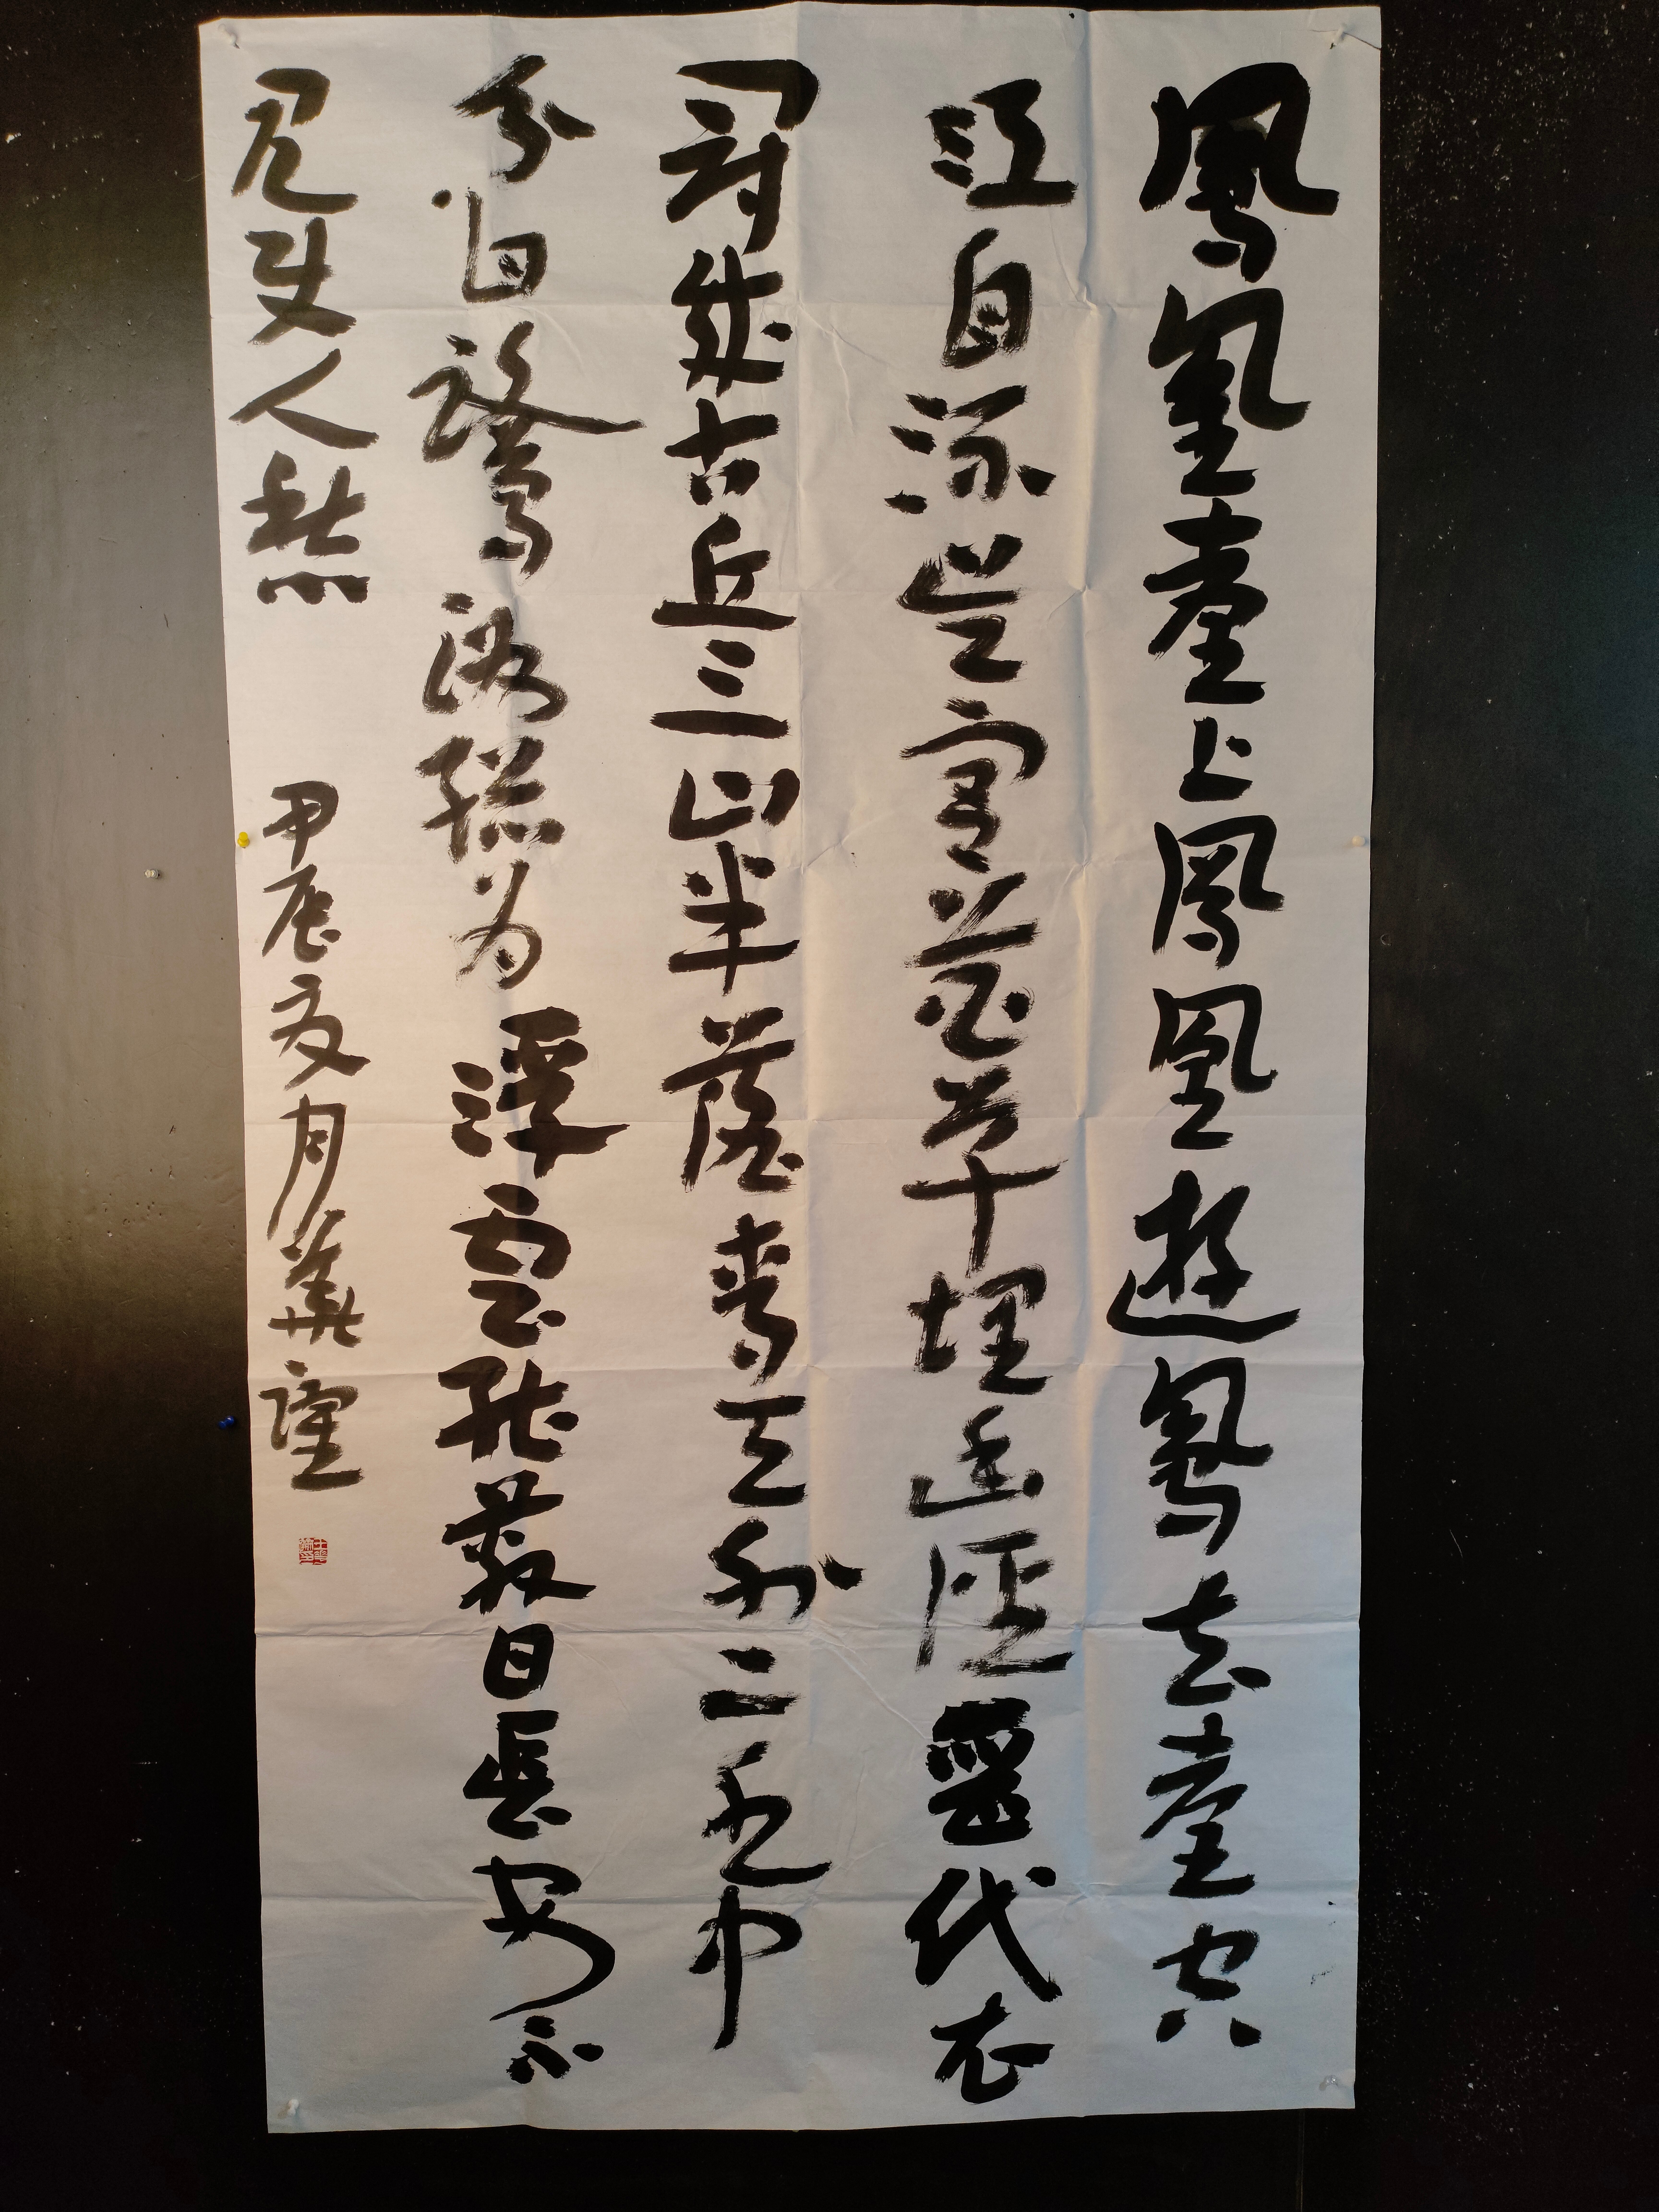 鳳凰臺上鳳凰遊鳳去臺空
江自流吳宮花草埋幽徑晉代衣
冠成古丘三山半落青天外二水中
分白鷺洲總为浮雲能蔽日長安不
見使人愁 甲辰夏月